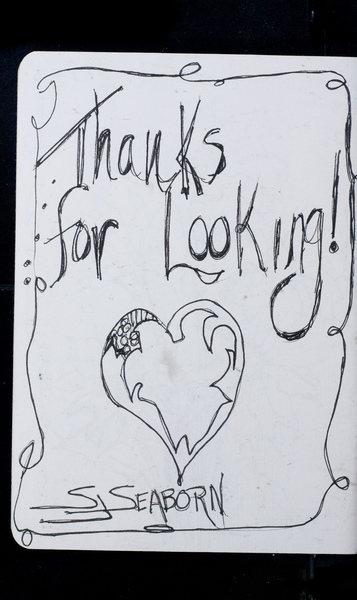 Thanks
for Looking!
SJ SEABORN